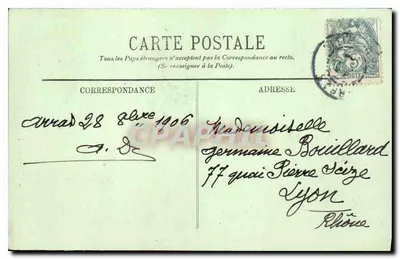 CARTE POSTALE
Tous les Pays étrangers n'acceptent pas la Correspondance au recto.
(Se renseigner à la Poste).
CORRESPONDANCE
ADRESSE
Arras 28 8bre 1906
A. D.
Mademoiselle
Germaine Bouillard
77 quai Pierre Scize
Lyon
Rhône